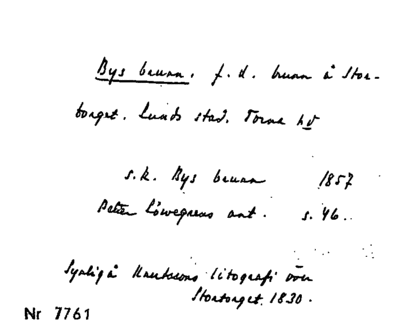 Bys brunn. f. d. brunn å Stor-
torget. Lunds stad. Torna hd
s.k. Bys brunn 1857
Peter Löwegrens ant. s. 46.
Synlig å Knutssons litografi över
Stortorget 1830.
Nr 7761